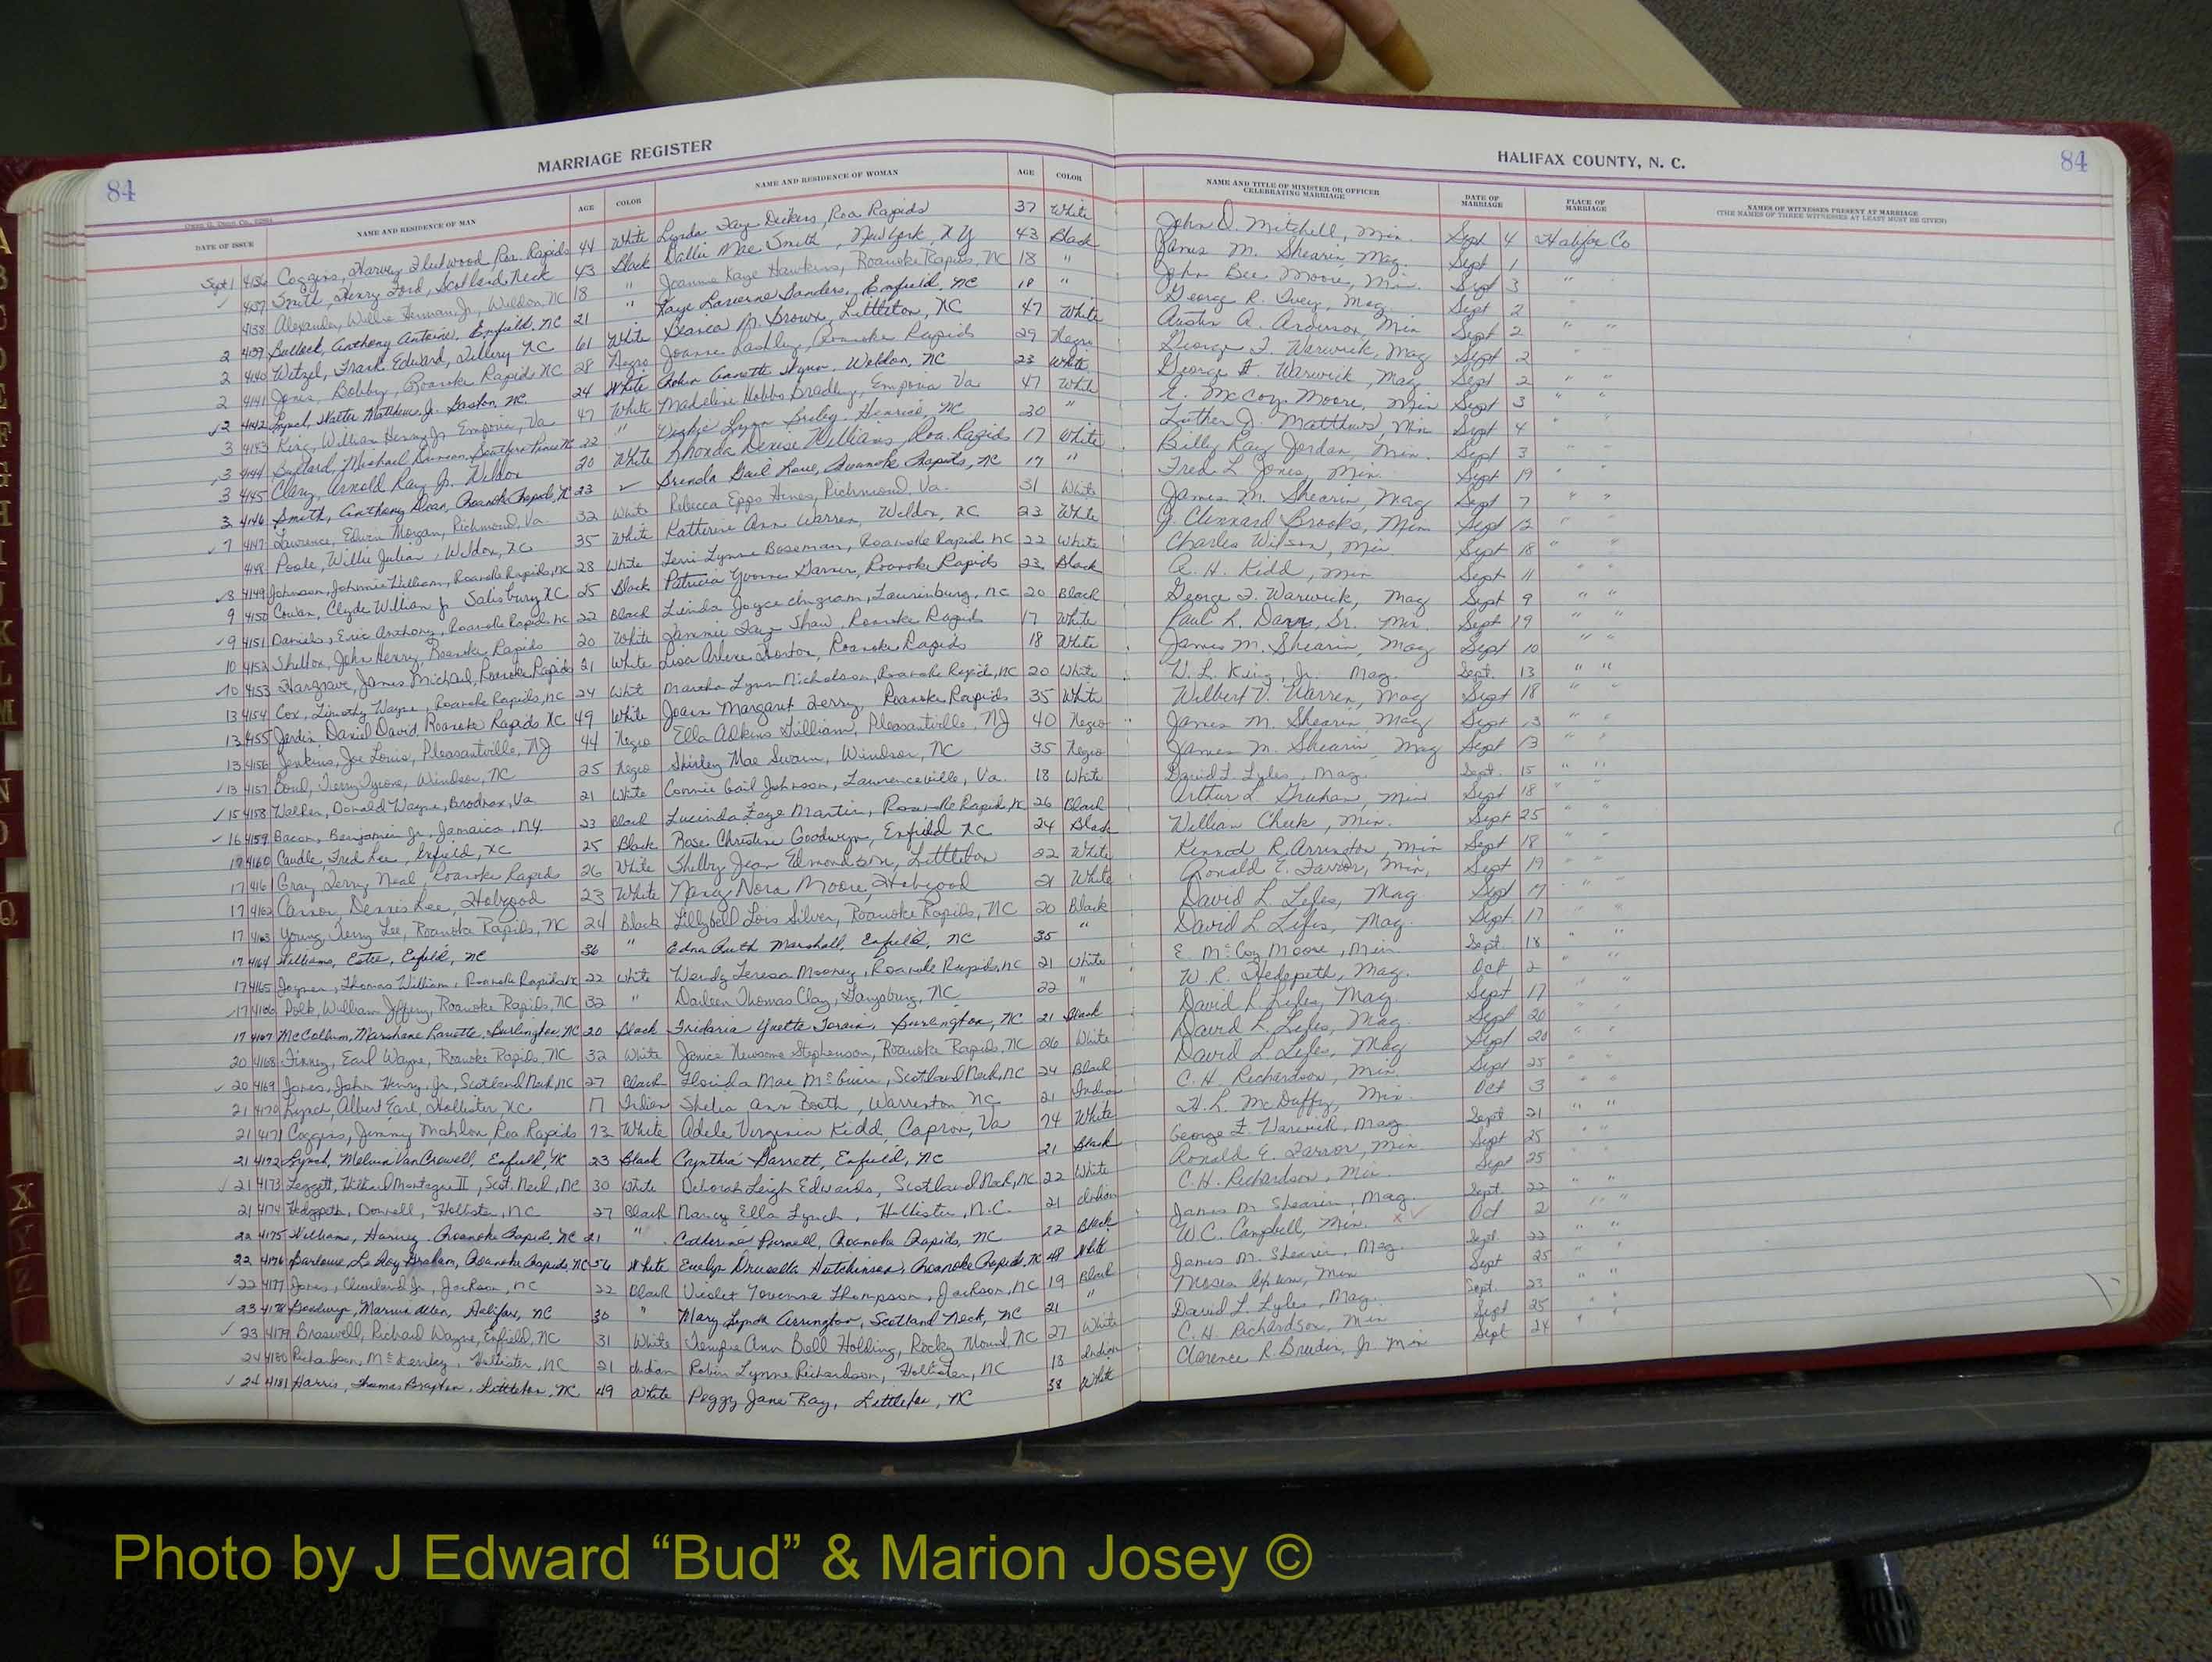 MARRIAGE REGISTER
HALIFAX COUNTY, N. C.
84
84
DATE OF ISSUE NAME AND RESIDENCE OF MAN AGE COLOR NAME AND RESIDENCE OF WOMAN AGE COLOR
NAME AND TITLE OF MINISTER OR OFFICER CELEBRATING MARRIAGE DATE OF MARRIAGE PLACE OF MARRIAGE NAMES OF WITNESSES PRESENT AT MARRIAGE (THE NAMES OF THREE WITNESSES AT LEAST MUST BE GIVEN)
Sept 1 4136 Coggins, Harvey Fleetwood Roa. Rapids 44 White Linda Faye Dickens, Roa Rapids 37 White
4137 Smith, Henry Ford, Scotland Neck 43 Black Dallie Mae Smith, New York, NY 43 Black
4138 Alexander, Willie Herman Jr., Weldon, NC 18 " Joanne Kaye Hawkins, Roanoke Rapids, NC 18 "
2 4139 Bullock, Anthony Antoine, Enfield, NC 21 " Faye Laverne Sanders, Enfield, NC 18 "
2 4140 Wetzel, Frank Edward, Tillery NC 61 White M. Brown, Littleton, NC 47 White
2 4141 Jones, Bobby, Roanoke Rapids NC 28 Negro Joanne Lashley, Roanoke Rapids 29 Negro
2 4142 Lynch, Walter Matthews, Jr. Gaston, NC 24 White Robin Annette Wynn, Weldon, NC 23 White
3 4143 King, William Henry Jr Emporia, Va 47 White Madeline Hobbs Bradley, Emporia Va 47 White
3 4144 Michael Duncan, Southern Pines NC 22 " Vickie Lynn Henrico, NC 20 "
3 4145 Clary, Arnold Ray Jr. Weldon 20 White Rhonda Denise Williams, Roa. Rapids 17 White
3 4146 Smith, Anthony Dean, Roanoke Rapids, NC 23 Brenda Gail Roanoke Rapids, NC 17 "
7 4147 Lawrence, Edwin Morgan, Richmond, Va. 32 White Rebecca Epps Hines, Richmond, Va. 31 White
4148 Poole, Willie Julian, Weldon, NC 35 White Katherine Ann Warren, Weldon, NC 23 White
8 4149 Johnson, Johnnie William, Roanoke Rapids, NC 28 White Terri Lynne Boseman, Roanoke Rapids NC 22 White
9 4150 Cowan, Clyde William Jr Salisbury NC 25 Black Patricia Yvonne Garner, Roanoke Rapids 23 Black
9 4151 Daniels, Eric Anthony, Roanoke Rapids, NC 22 Black Linda Joyce Ingram, Laurinburg, NC 20 Black
10 4152 Shelton, John Henry, Roanoke Rapids 20 White Tammie Faye Shaw, Roanoke Rapids 17 White
10 4153 Hargrave, James Michael, Roanoke Rapids 21 White Lisa Arlene Horton, Roanoke Rapids 18 White
13 4154 Cox, Timothy Wayne, Roanoke Rapids, NC 24 White Martha Lynn Nicholson, Roanoke Rapids, NC 20 White
13 4155 Daniel David, Roanoke Rapids NC 49 White Joan Margaret Terry, Roanoke Rapids 35 White
13 4156 Jenkins, Joe Louis, Pleasantville, NJ 44 Negro Ella Adkins Gilliam, Pleasantville, NJ 40 Negro
13 4157 Bond, Terry Tyrone, Windsor, NC 25 Negro Shirley Mae Swain, Windsor, NC 35 Negro
15 4158 Walker, Donald Wayne, Brodnax, Va 21 White Connie Gail Johnson, Lawrenceville, Va. 18 White
16 4159 Bacon, Benjamin Jr., Jamaica, N.Y. 23 Black Lucinda Faye Martin, Roanoke Rapids, NC 26 Black
17 4160 Caudle, Fred Lee, Enfield, NC 25 Black Rose Christine Goodwyn, Enfield NC 24 Black
17 4161 Gray, Terry Neal, Roanoke Rapids 26 White Shelby Jean Edmondson, Littleton 22 White
17 4162 Dennis Lee, Hobgood 23 White Nancy Nora Moore, Hobgood 21 White
17 4163 Young, Terry Lee, Roanoke Rapids, NC 24 Black Lillybell Lois Silver, Roanoke Rapids, NC 20 Black
17 4164 Williams, Enfield, NC 36 " Edna Ruth Marshall, Enfield, NC 35 "
17 4165 Joyner, Thomas William, Roanoke Rapids NC 22 White Wendy Teresa Mooney, Roanoke Rapids, NC 21 White
17 4166 Polk, William Jeffery, Roanoke Rapids, NC 32 " Darleen Thomas Clay, Garysburg, NC 22 "
17 4167 McCollum, Marshane Burlington, NC 20 Black Yvette Burlington, NC 21 Black
20 4168 Finney, Earl Wayne, Roanoke Rapids, NC 32 White Janice Newsome Stephenson, Roanoke Rapids, NC 26 White
20 4169 Jones, John Henry, Jr, Scotland Neck, NC 27 Black Florida Mae McGuire, Scotland Neck, NC 24 Black
21 4170 Lynch, Albert Earl, Hollister, NC 17 Indian Shelia Ann Booth, Warrenton NC 21 Indian
21 4171 Coggins, Jimmy Mahlon, Roa Rapids 73 White Adele Virginia Kidd, Capron, Va 74 White
21 4172 Lynch, Melvin Van Crowell, Enfield, NC 23 Black Cynthia Garrett, Enfield, NC 21 Black
21 4173 Leggett, Montague II, Scot. Neck, NC 30 White Deborah Leigh Edwards, Scotland Neck, NC 22 White
21 4174 Hedgpeth, Donnell, Hollister, NC 27 Black Nancy Ella Lynch, Hollister, N.C. 21 Indian
22 4175 Williams, Harvey, Roanoke Rapids, NC 21 " Catherine Purnell, Roanoke Rapids, NC 22 Black
22 4176 Le Roy Graham, Roanoke Rapids, NC 56 White Evelyn Drusella Hutchinson, Roanoke Rapids, NC 48 White
22 4177 Jones, Cleveland Jr, Jackson, NC 22 Black Violet Thompson, Jackson, NC 19 Black
23 4178 Goodwyn, Marvin Allen, Halifax, NC 30 " Mary Lynda Arrington, Scotland Neck, NC 21 "
23 4179 Braswell, Richard Wayne, Enfield, NC 31 White Tempie Ann Bell Holding, Rocky Mount, NC 27 White
24 4180 Richardson, McKinley, Hollister, NC 21 Indian Robin Lynne Richardson, Hollister, NC 18 Indian
24 4181 Harris, Thomas Braxton, Littleton, NC 49 White Peggy Jane Ray, Littleton, NC 38 White
John D. Mitchell, Min. Sept 4 Halifax Co
James M. Shearin, Mag. Sept 1
John Bee Moore, Min. Sept 3 "
George R. Ivey, Mag. Sept 2
Austin A. Anderson, Min Sept 2 " "
George F. Warwick, Mag Sept 2
George F. Warwick, Mag Sept 2 " "
E. McCoy Moore, Min Sept 3 " "
Luther J. Matthews, Min Sept 4
Billy Ray Jordan, Min. Sept 3
Fred L. Jones, Min. Sept 19
James M. Shearin, Mag Sept 7 " "
J. Clennard Brooks, Min Sept 12
Charles Wilson, Min Sept 18 " "
A. H. Kidd, Min Sept 11
George F. Warwick, Mag Sept 9 " "
Paul L. Sr. Min. Sept 19 " "
James M. Shearin, Mag Sept 10 " "
W. L. King, Jr. Mag. Sept. 13 " "
Wilbert V. Warren, Mag Sept 18 " "
James M. Shearin, Mag Sept 13 " "
James M. Shearin Mag Sept 13 " "
David L. Lyles, Mag. Sept. 15 " "
Arthur L. Graham, Min Sept 18 " "
William Cheek, Min. Sept 25
R. Arrington, Min Sept 18 " "
Ronald E. Farror, Min, Sept 19 " "
David L. Lyles, Mag Sept 17 " "
David L. Lyles, Mag. Sept. 17 " "
E. McCoy Moore, Min Sept. 18 " "
W. R. Hedgpeth, Mag. Oct 2 " "
David L. Lyles, Mag. Sept 17 " "
David L. Lyles, Mag. Sept 20 "
David L. Lyles, Mag Sept 20 " "
C. H. Richardson, Min Sept 25 " "
H. L. McDuffy, Min. Oct 3 " "
George F. Warwick, Mag Sept 21 " "
Ronald E. Farror, Min Sept 25 " "
C. H. Richardson, Min Sept 25
James M Shearin, Mag. Sept. 22 " "
W. C. Campbell, Min. Oct 2 " "
James M. Shearin, Mag. Sept. 22 " "
Moses Min Sept 25 " "
David L. Lyles, Mag. Sept. 23 " "
C. H. Richardson, Min Sept 25 " "
Clarence R. Jr. Min Sept 24 "
Photo by J Edward “Bud” & Marion Josey ©